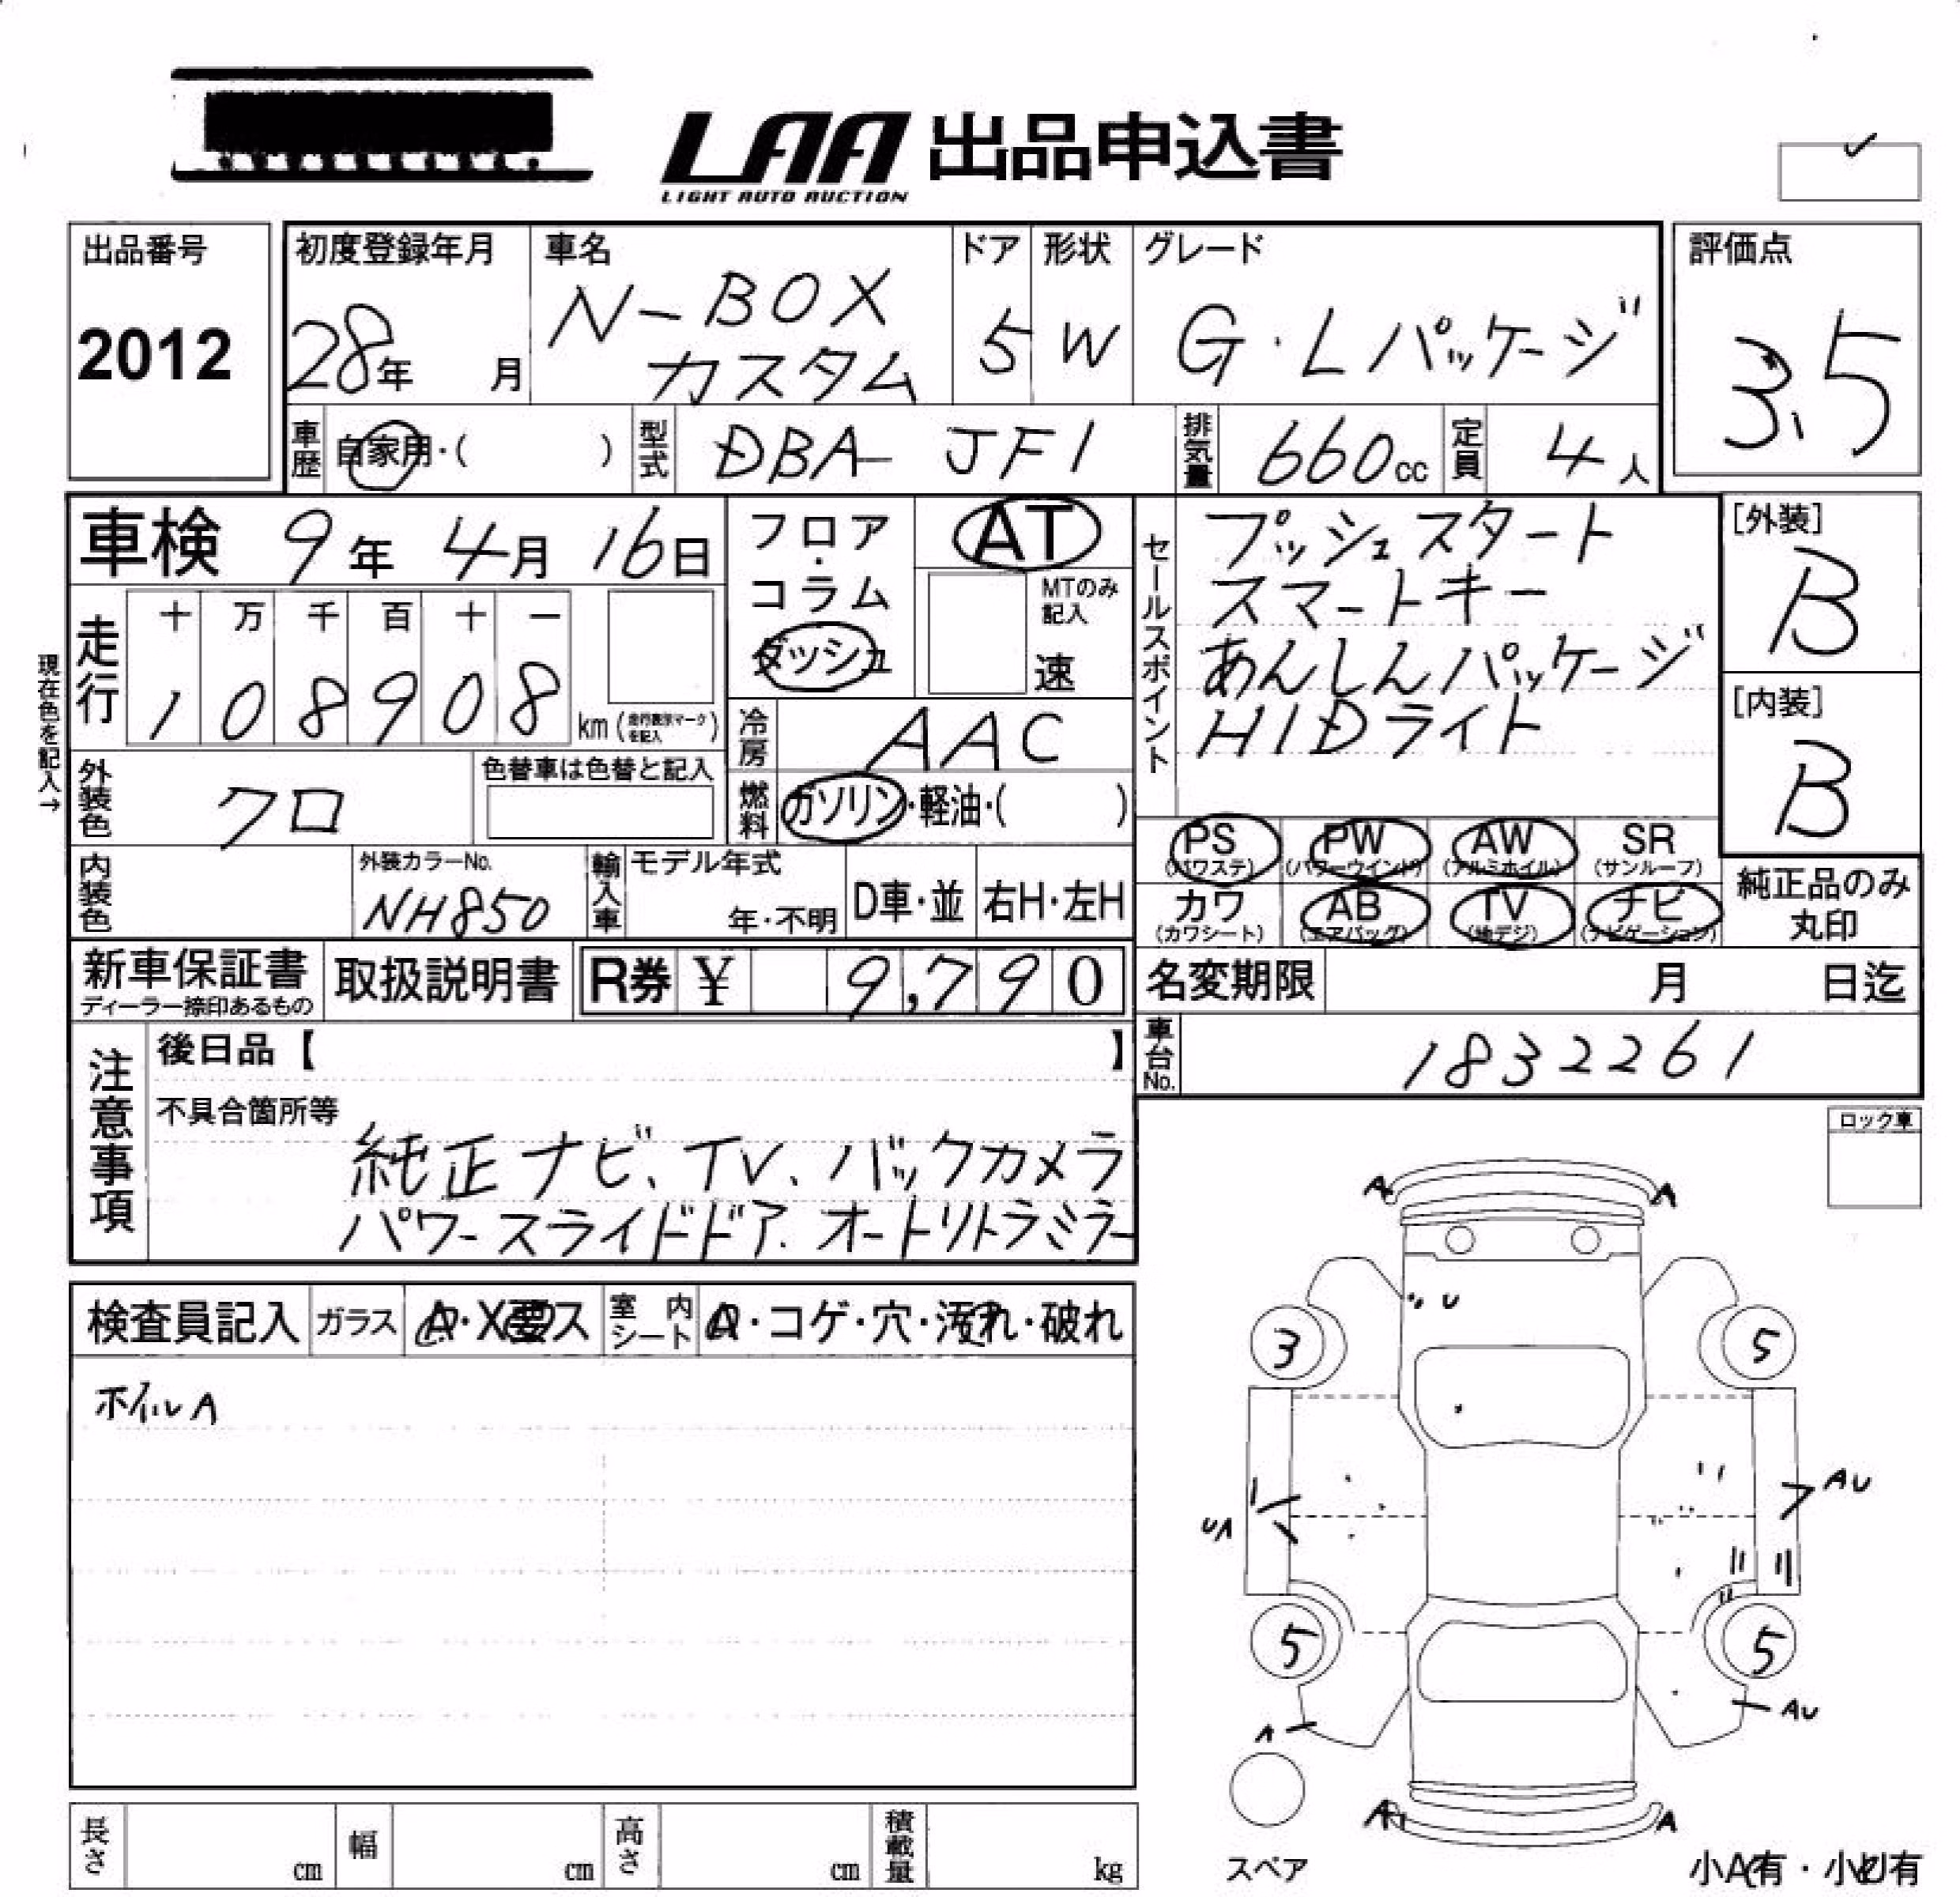 LAA 出品申込書
LIGHT AUTO AUCTION
出品番号
2012
初度登録年月
28年 月
車名
N-BOX
カスタム
ドア
5
形状
W
グレード
G・Lパッケージ
評価点
3.5
車歴 自家用・( )
型式 DBA-JF1
排気量 660cc
定員 4人
車検 9年 4月 16日
現在色を記入→
走行
十 万 千 百 十 一
1 0 8 9 0 8 km (走行表示マークを記入)
フロア・コラム
ダッシュ
AT
MTのみ記入
速
冷房 AAC
燃料 ガソリン・軽油・( )
外装色 クロ
色替車は色替と記入
内装色
外装カラーNo.
NH850
輸入車 モデル年式
年・不明
D車・並
右H・左H
セールスポイント
プッシュスタート
スマートキー
あんしんパッケージ
HIDライト
[外装]
B
[内装]
B
PS (パワステ)
PW (パワーウインド)
AW (アルミホイル)
SR (サンルーフ)
カワ (カワシート)
AB (エアバッグ)
TV (地デジ)
ナビ (ナビゲーション)
純正品のみ
丸印
新車保証書
ディーラー捺印あるもの
取扱説明書
R券 ¥ 9,790
名変期限 月 日迄
車台No. 1832261
注意事項
後日品【 】
不具合箇所等
純正ナビ、TV、バックカメラ
パワースライドドア、オートリトラミラー
ロック車
検査員記入 ガラス A・X要ス 室内シート ・コゲ・穴・汚れ・破れ
ホイルA
A A
U
3 5
UA AU
5 5
A AU
A A
スペア
小A有・小U有
長さ cm
幅 cm
高さ cm
積載量 kg